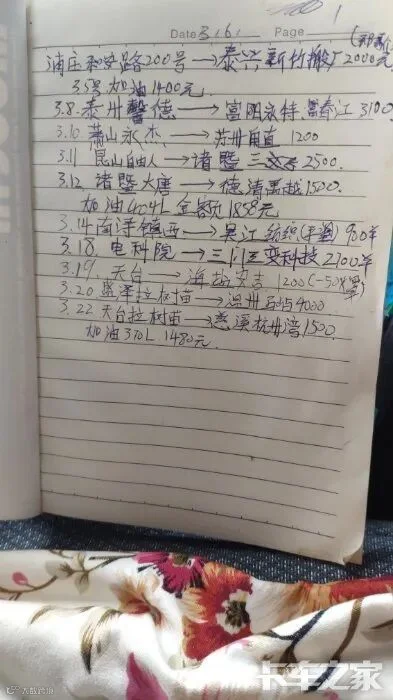 1
Date 3.6 Page
浦庄和安路200号→泰兴新竹搬厂2000元
35号加油1400元
3.8.泰州馨德→富阳永特,富春江3100
3.10 萧山永杰→苏州甪直1200
3.11 昆山自由人→诸暨三 2500.
3.12 诸暨大唐→德清禹越1500.
加油404L金额1858元
3.14南浔镇西→吴江纺织 900
3.18.电科院→三门三变科技2100
3.19.天台→海盐安吉1200(-50
3.20 盛泽拉树苗→温州 4000
3.22 天台拉树苗→慈溪杭州湾1500.
加油310L 1480元.
大数跨境
卡车之家